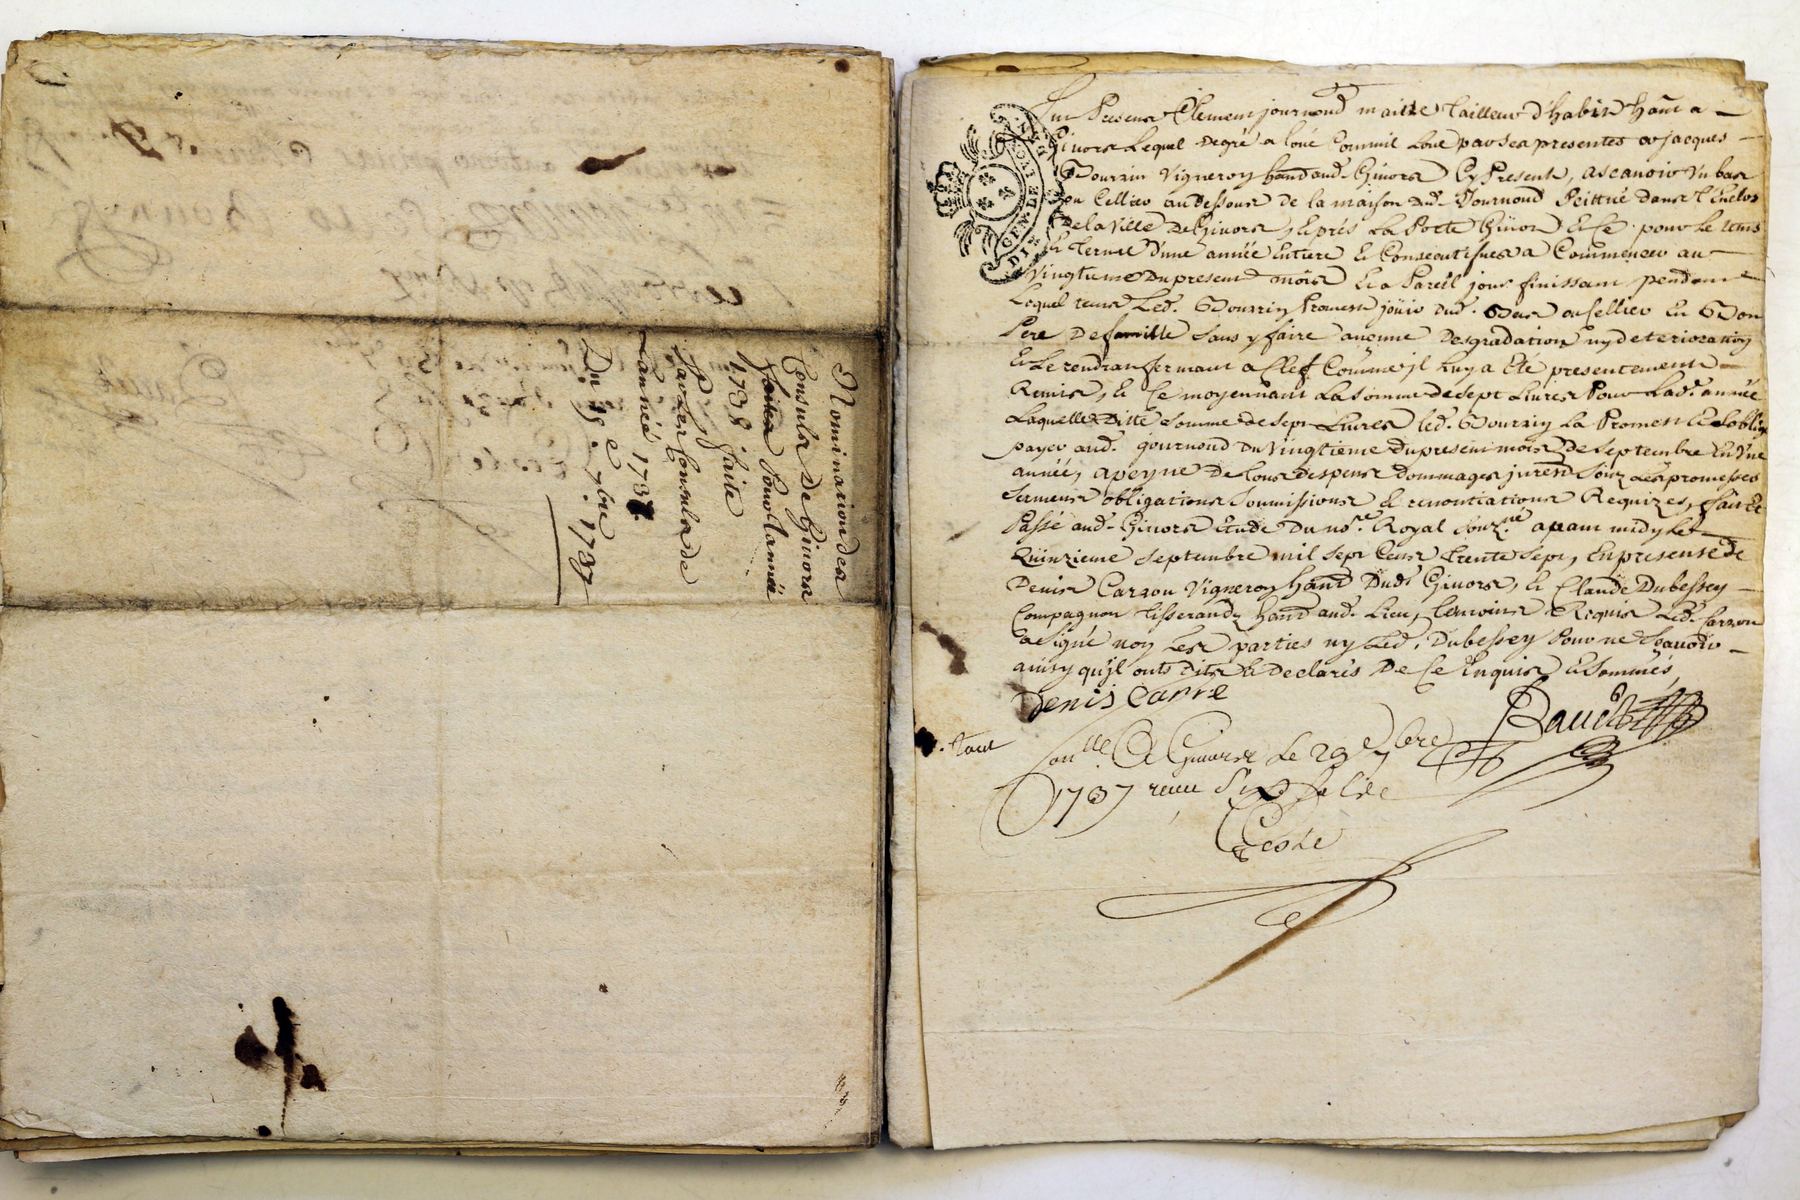 Nomination des
Consuls de Givors
faites Pour l'année
1738, faite
Par Les Consuls de
L'année 1737.
Du 15e 7bre 1737
GEN. DE LYON
Fut Present Clement journoud maitre Tailleur d'habits hant a
Givors Lequel degré a loué Comm'il Loue par ses presentes a jacques
Bourrin Vigneron hand aud. Givors Cy Present, ascavoir Un bas
ou Cellier au dessous de la maison dud. Journoud scittué dans l'Enclos
De la Ville De Givors, et Ce pour le tems
Et Terme D'une année Entiere Et Consecutifves a Commencer au
Vingtieme Du present mois Et a Pareil jour finissant, pendant
Lequel tems Led. Bourrin Promest joüir dud. Bas ou Cellier En Bon
Pere De famille sans y faire aucunne Desgradation ny deterioration
Et Le rendra fermant a Clef Comme jl luy a Eté presentement
Remis, Et Ce moyennant La somme de sept Livres Pour Lad. année
Laquelle Ditte somme de sept Livres led. Bourrin La Promest Et s'oblige
payer aud. journoud Du Vingtieme Du present mois de septembre En Une
année, a peyne De tous despens dommages jnterets sous Les promesses
serments obligations soumissions & renontiations Requizes, fait Et
Passé aud. Givors Etude Du no.re Royal souz.né avant midy Le
Quinzieme septembre mil sept Cents trente sept, En presense de
Denis Carron Vigneron hant Dud. Givors, Et Claude Dubessey
Compagnon tisserand hant aud. Lieu, temoins Requis Led. Carron
a signé non Les parties ny Led. Dubessey Pour ne sçavoir
ainsy qu'jl onts dits & declarés De Ce Enquis Et sommés
Denis Carre
Conlle A Givors Le 29e 7bre
1737 receu Six sols
Teste